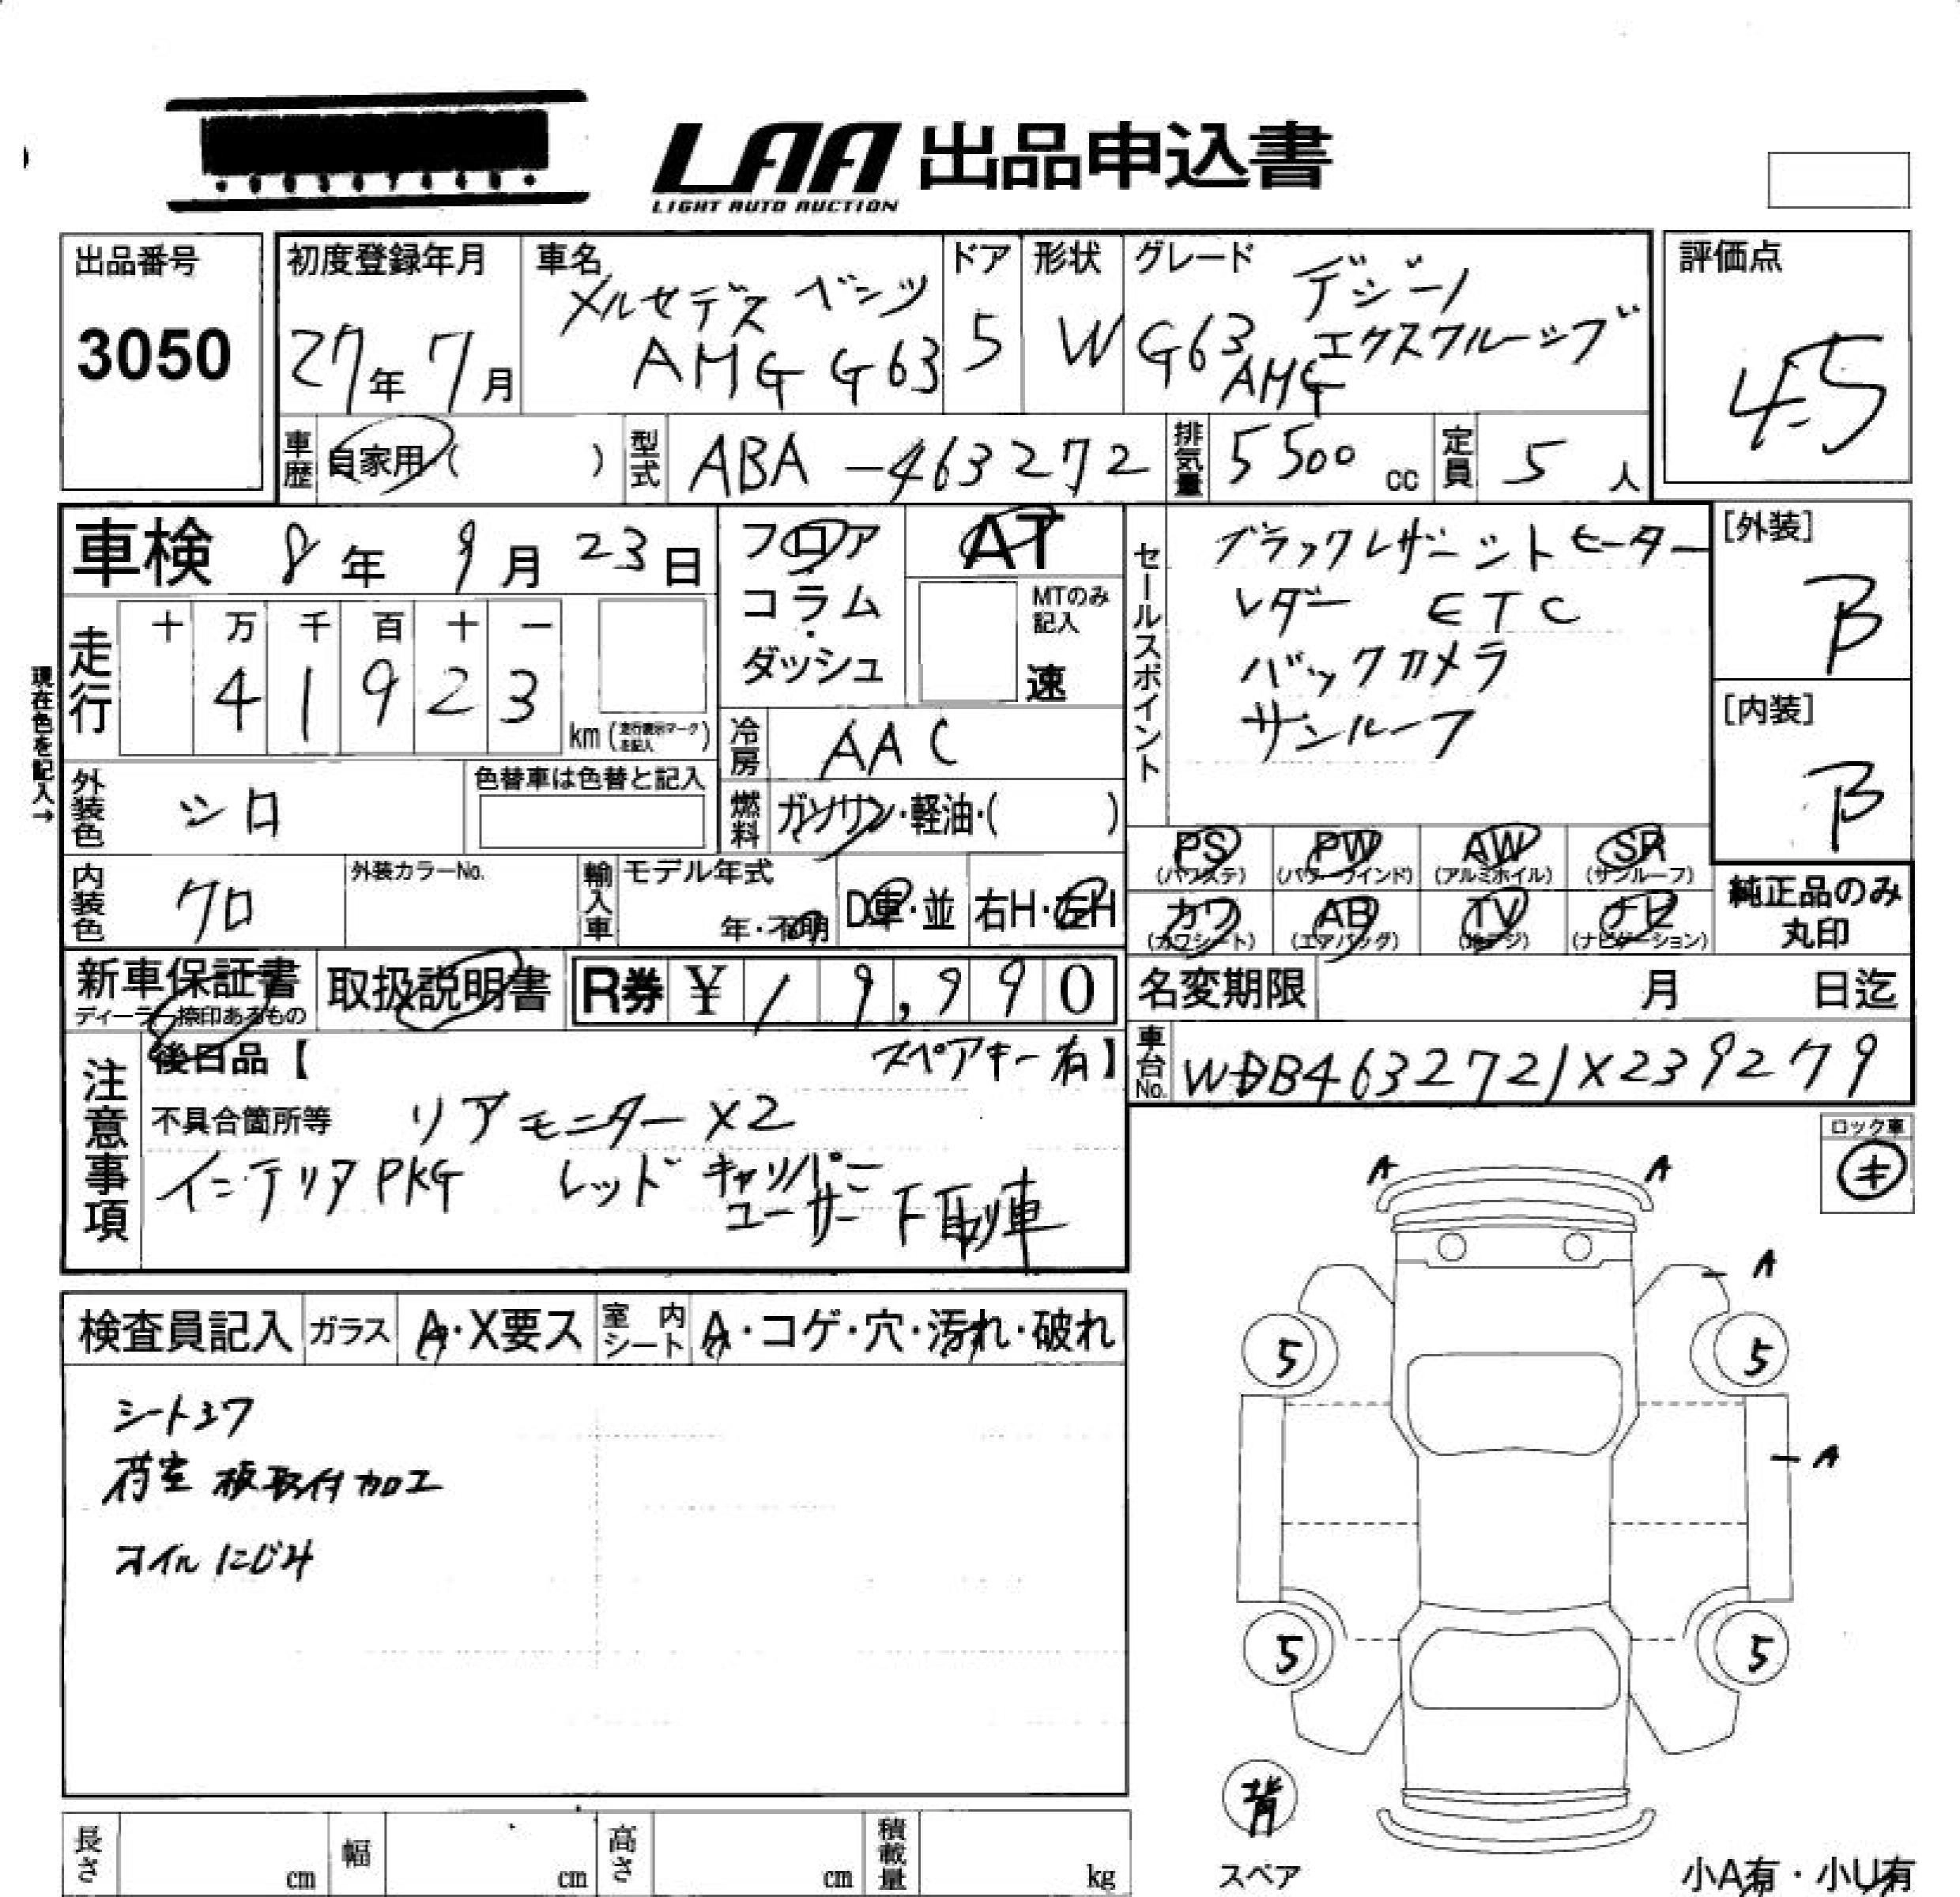 LAA 出品申込書
LIGHT AUTO AUCTION
出品番号
3050
初度登録年月
27年 7月
車名
メルセデス ベンツ
AMG G63
ドア
5
形状
W
グレード
デジーノ
G63 エクスクルーシブ
AMG
評価点
4.5
車歴
自家用 ( )
型式
ABA-463272
排気量
5500 cc
定員
5 人
車検 8年 9月 23日
現在色を記入→
走行
十 万 千 百 十 一
4 1 9 2 3
km (走行表示マークを記入)
フロア
コラム
・
ダッシュ
AT
MTのみ記入
速
冷房
AAC
燃料
ガソリン・軽油・( )
外装色
シロ
色替車は色替と記入
内装色
クロ
外装カラーNo.
輸入車
モデル年式
年・不明
D車・並
右H・左H
セールスポイント
ブラックレザーシートヒーター
レダー ETC
バックカメラ
サンルーフ
[外装]
B
[内装]
B
PS (パワステ)
PW (パワーウインド)
AW (アルミホイル)
SR (サンルーフ)
カワ (カワシート)
AB (エアバッグ)
TV (地デジ)
ナビ (ナビゲーション)
純正品のみ
丸印
新車保証書
ディーラー捺印あるもの
取扱説明書
R券 ¥ 19,990
名変期限 月 日迄
車台No.
WDB4632721X239279
注意事項
後日品【 スペアキー有】
不具合箇所等 リアモニターX2
インテリアPKG レッドキャリパー
ユーザー下取車
ロック車
キ
検査員記入
ガラス
A・X要ス
室内シート
A・コゲ・穴・汚れ・破れ
シートスレ
荷室 板取付加工
オイルにじみ
A A
A
5 5
A
5 5
背
スペア
小A有・小U有
長さ cm
幅 cm
高さ cm
積載量 kg